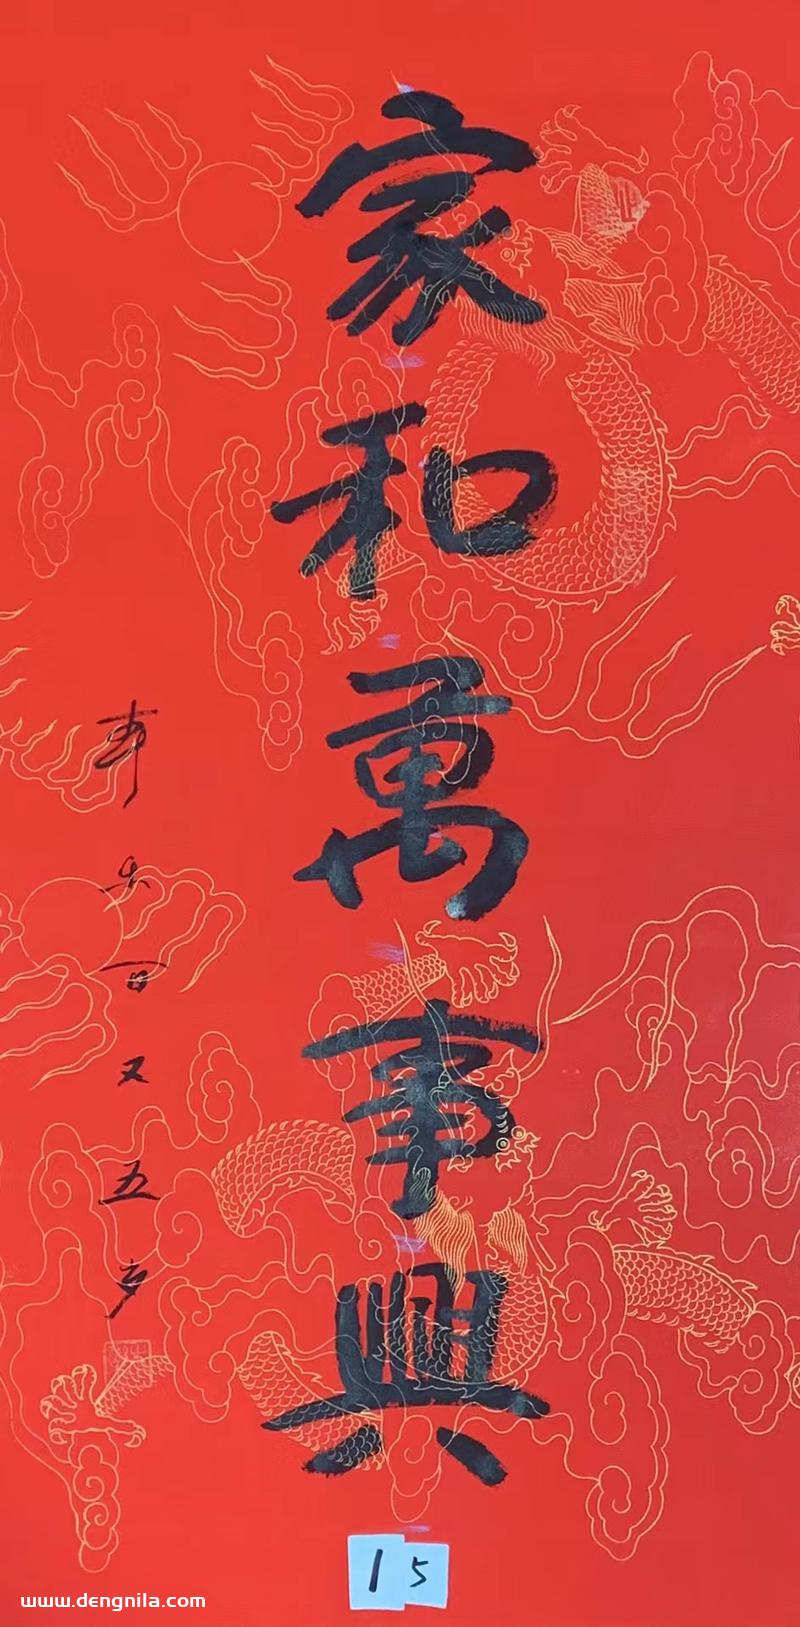 家和萬事興
百又五岁
15
www.dengnila.com